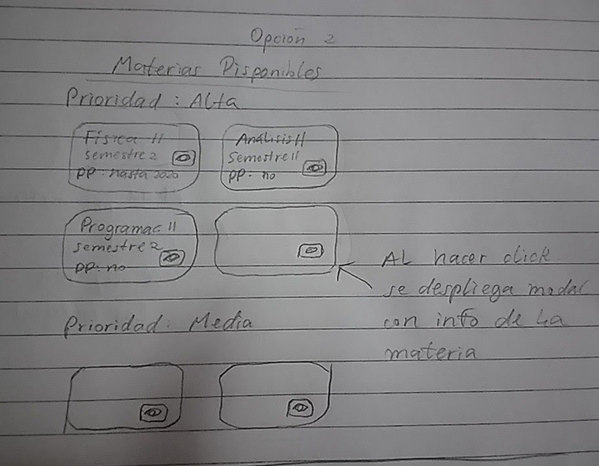 Opción 2
Materias Disponibles
Prioridad: Alta
Física II
semestre 2
PP: hasta 2020
Análisis II
Semestre II
PP: no
Programac II
semestre 2
PP: no
Al hacer click
se despliega modal
con info de la
materia
Prioridad: Media